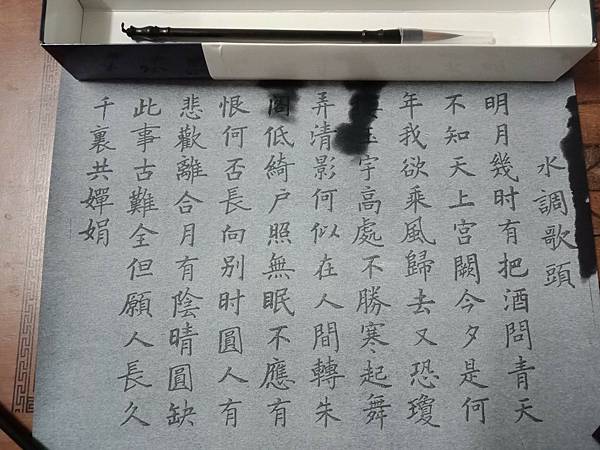 水調歌頭
明月幾时有把酒問青天
不知天上宮闕今夕是何
年我欲乘風歸去又恐瓊
玉宇高處不勝寒起舞
弄清影何似在人間轉朱
閣低綺户照無眠不應有
恨何否長向别时圓人有
悲歡離合月有陰晴圓缺
此事古難全但願人長久
千裏共嬋娟